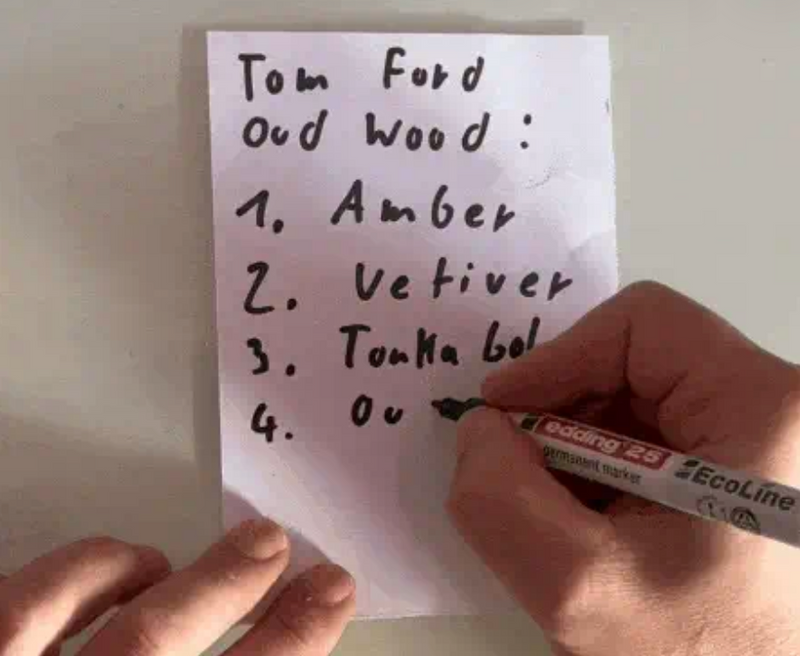 Tom Ford
Oud Wood:
1. Amber
2. Vetiver
3. Tonka
4. Ou
edding 25
permanent marker
EcoLine